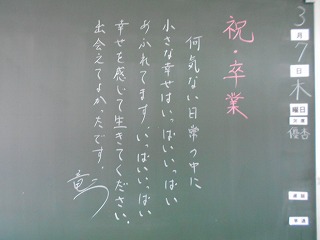 3月7日木曜日
日直
優杏
祝・卒業
何気ない日常の中に
小さな幸せはいっぱいいっぱい
あふれてます。いっぱいいっぱい
幸せを感じて生きてください。
出会えてよかったです。
竜二